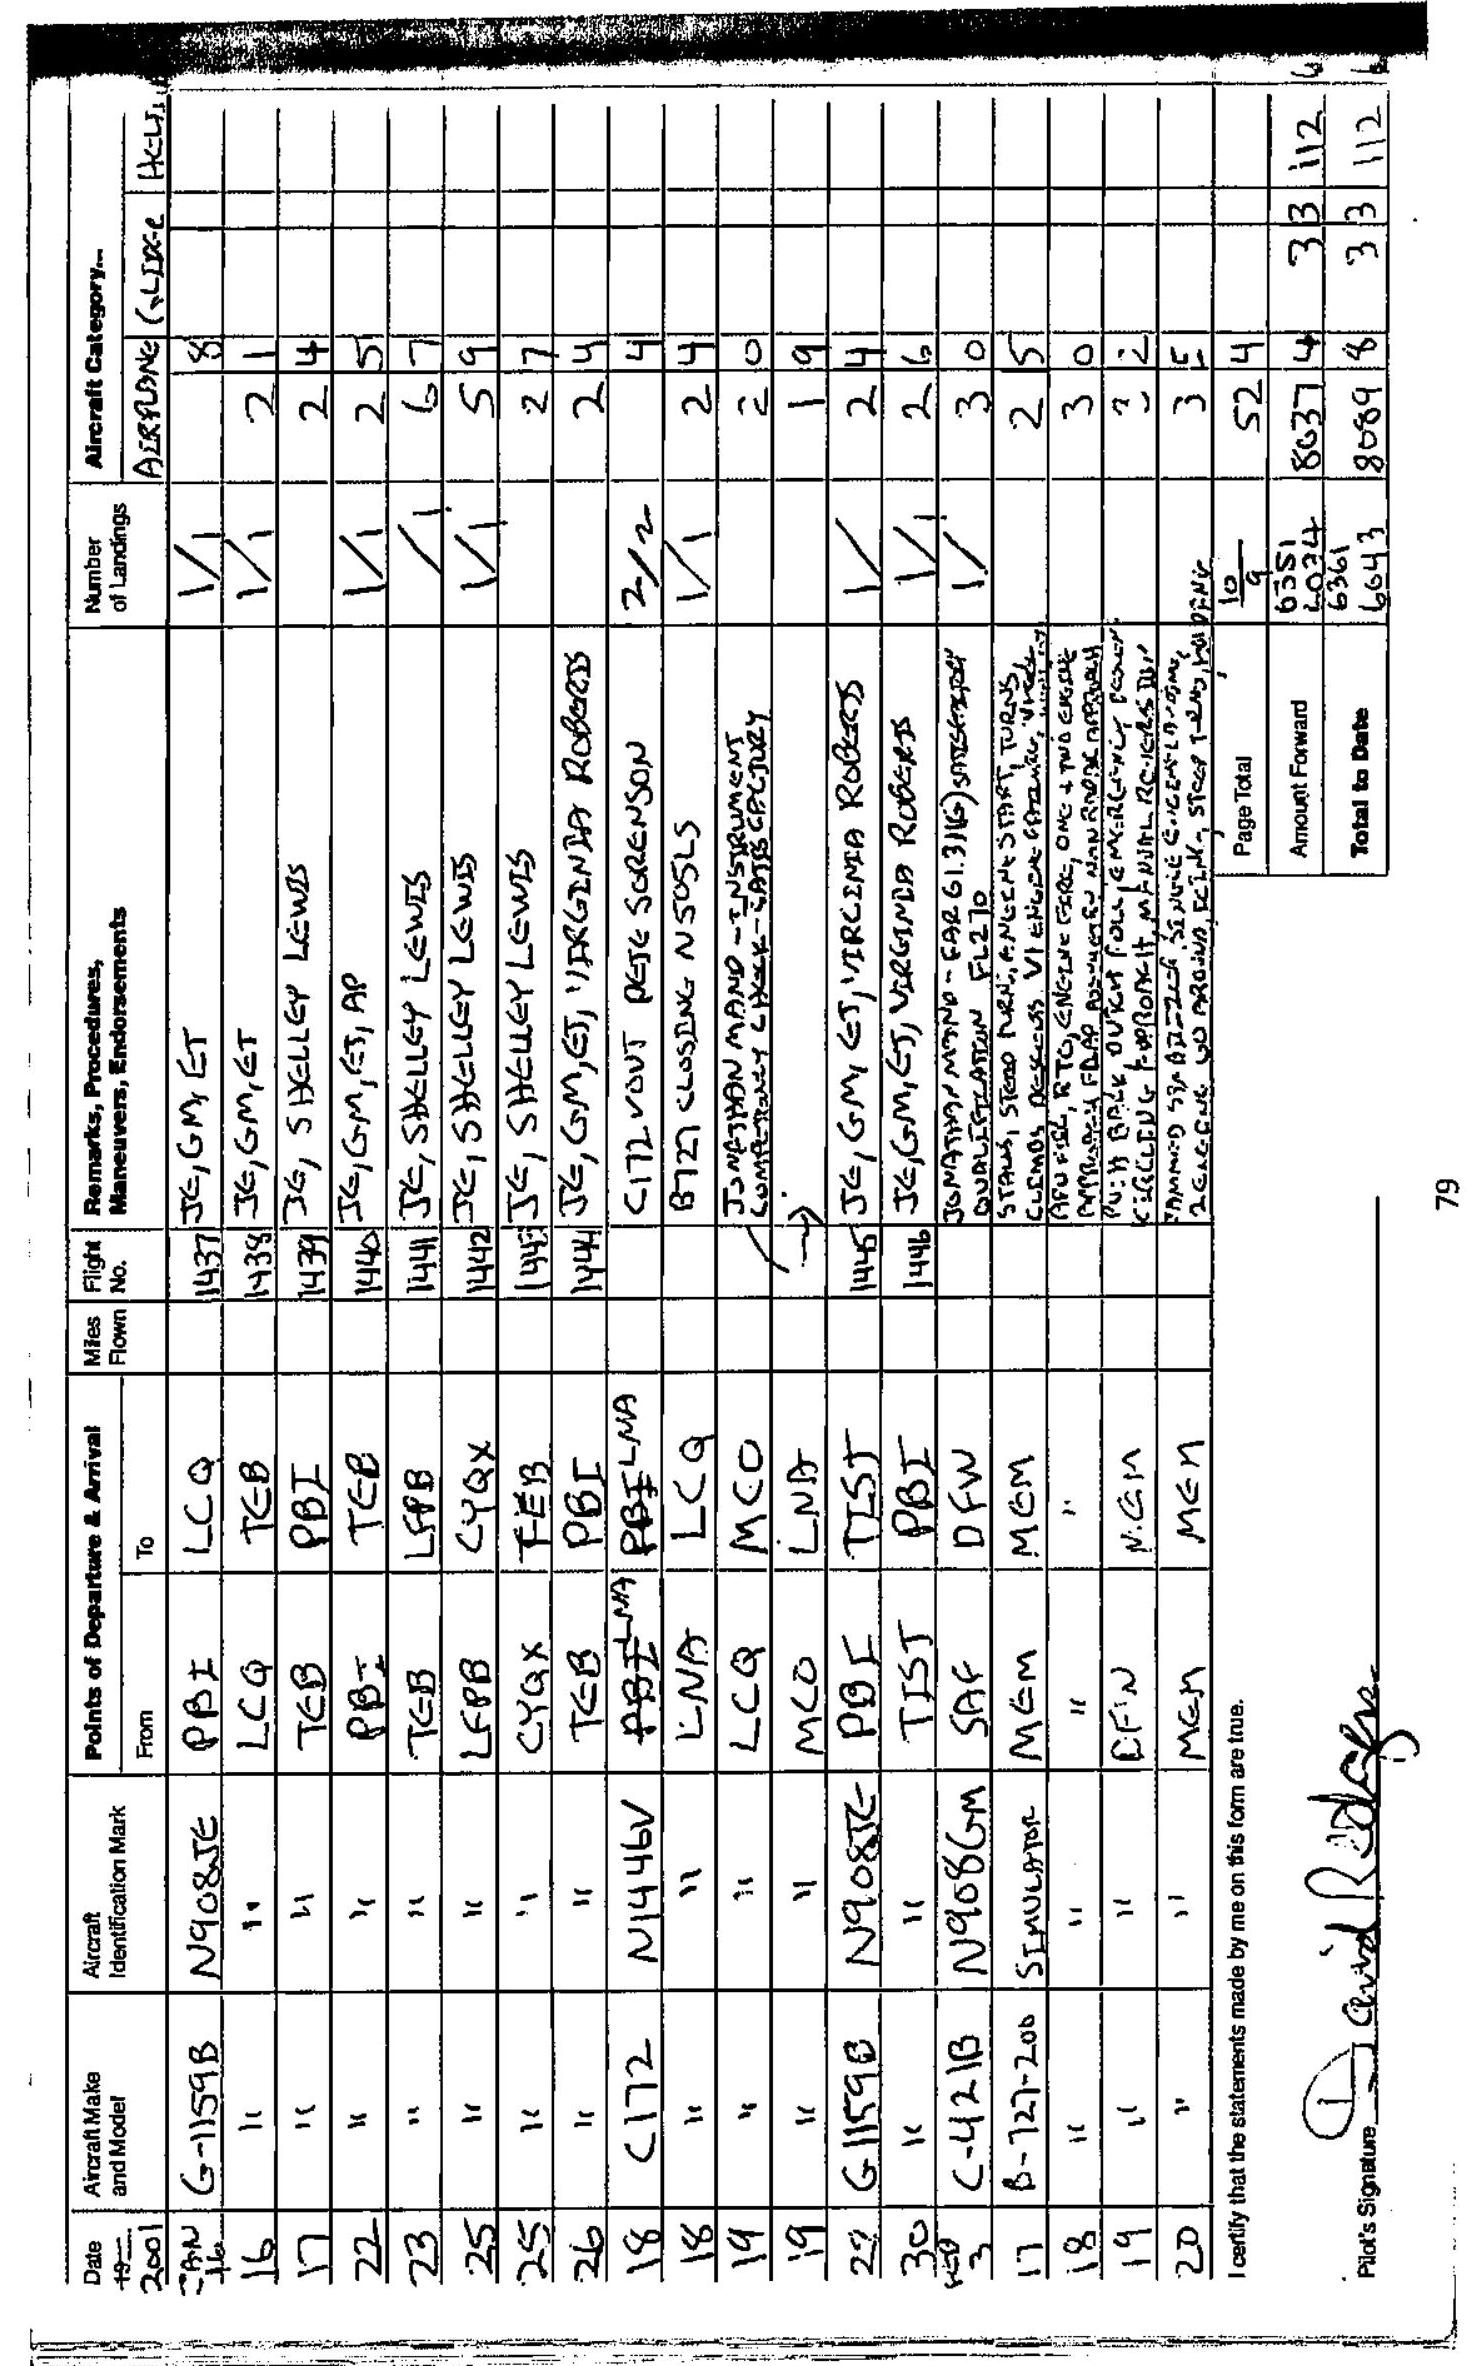 Date 19 2001 Aircraft Make and Model Aircraft Identification Mark Points of Departure & Arrival From To Miles Flown Flight No. Remarks, Procedures, Maneuvers, Endorsements Number of Landings Aircraft Category... AIRPLANE GLIDER HELI
JAN 16 G-1159B N908JE PBI LCQ 1437 JE, GM, ET 1/1 8
16 " " LCQ TEB 1438 JE, GM, ET 1/1 2 1
17 " " TEB PBI 1439 JE, SHELLEY LEWIS 2 4
22 " " PBI TEB 1440 JE, GM, ET, AP 1/1 2 5
23 " " TEB LFPB 1441 JE, SHELLEY LEWIS /1 6 7
25 " " LFPB CYQX 1442 JE, SHELLEY LEWIS 1/1 5 9
25 " " CYQX TEB 1443 JE, SHELLEY LEWIS 2 7
26 " " TEB PBI 1444 JE, GM, ET, VIRGINIA ROBERTS 2 4
18 C172 N1446V PBI LNA PBI LNA C172 VOUT PETE SORENSON 2/2 4
18 " " LNA LCQ B727 CLOSING N505LS 1/1 2 4
19 " " LCQ MCO JONATHAN MANO - INSTRUMENT 2 0
COMPETENCY CHECK - SATISFACTORY
19 " " MCO LNA 1 9
27 G1159B N908JE PBI TIST 1445 JE, GM, ET, VIRGINIA ROBERTS 1/ 2 4
30 " " TIST PBI 1446 JE, GM, ET, VIRGINIA ROBERTS 1/1 2 6
FEB 3 C-421B N908GM SAF DFW JONATHAN MANO - FAR 61.31(G) SATISFACTORY 1/ 3 0
QUALIFICATION FL270
17 B-727-200 SIMULATOR MEM MEM STALLS, STEEP TURN, ENGINE START, TURNS, 2 5
CLIMBS, DESCENTS V1 ENGINE
18 " " " " APU FIRE, RTO, ENGINE FIRE, ONE & TWO ENGINE 3 0
APPROACH NDB APPROACH
19 " " MEM EMERGENCY
CIRCLING APPROACH, MANUAL REVERSION
20 " " MEM MEM SINGLE 3 5
2 ENGINE GO AROUND, STEEP TURNS, HOLDING
I certify that the statements made by me on this form are true.
Page Total 10 9 52 4
Amount Forward 6351 6034 8037 4 3 3 112 6
Total to Date 6361 6643 8089 8 3 3 112 6
Pilot's Signature David Rodgers
79